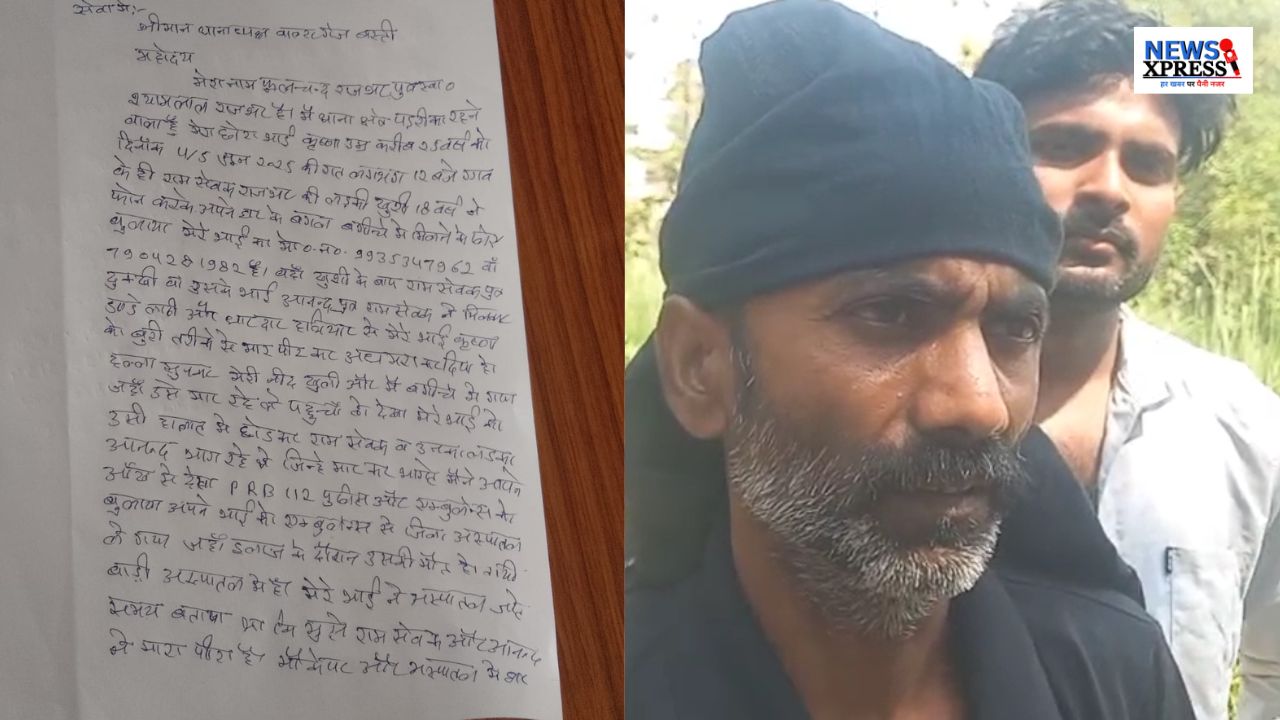 सेवा में:-
श्रीमान थानाध्यक्ष वाल्टरगंज बस्ती
महोदय
मेरा नाम फूलचन्द राजभर पुत्र स्व०
श्यामलाल राजभर है। मै थाना क्षेत्र का रहने
वाला हूँ मेरा छोटा भाई कृष्णा उम्र करीब 25 वर्ष को
दिनाँक 4/5 जून 2025 की रात लगभग 12 बजे गाव
के ही राम सेवक राजभर की लड़की खुशी 18 वर्ष ने
फोन करके अपने घर के बगल बगीचे मे मिलने के लिए
बुलाया मेरे भाई का मो०न०- 9935347962 वॉ
7904281982 है। वहाँ खुशी के बाप राम सेवक पुत्र
व उसके भाई आनन्द पुत्र राम सेवक ने मिलकर
डण्डे लाठी और धारदार हथियार से मेरे भाई कृष्णा
को बुरी तरीके से मार पीट कर अधमरा कर दिया है।
हल्ला सुनकर मेरी नीद खुली और मै बगीचे मे गया
जहाँ उसे मार रहे थे पहुँचा तो देखा मेरे भाई को
उसी हालत मे छोड़कर राम सेवक व उनका लड़का
आनन्द भाग रहे थे जिन्हे मार कर भागते मैने अपने
आँख से देखा PRB 112 पुलिस और एम्बुलेन्स को
बुलाया अपने भाई को एम्बुलेन्स से जिला अस्पताल
ले गया जहाँ इलाज के दौरान उसकी मौत हो गयी
बाडी अस्पताल मे है। मेरे भाई ने अस्पताल जाते
समय बताया था कि मुझे राम सेवक और आनन्द
ने मारा पीटा है। और अस्पताल मे
NEWS
XPRESS
हर खबर पर पैनी नजर